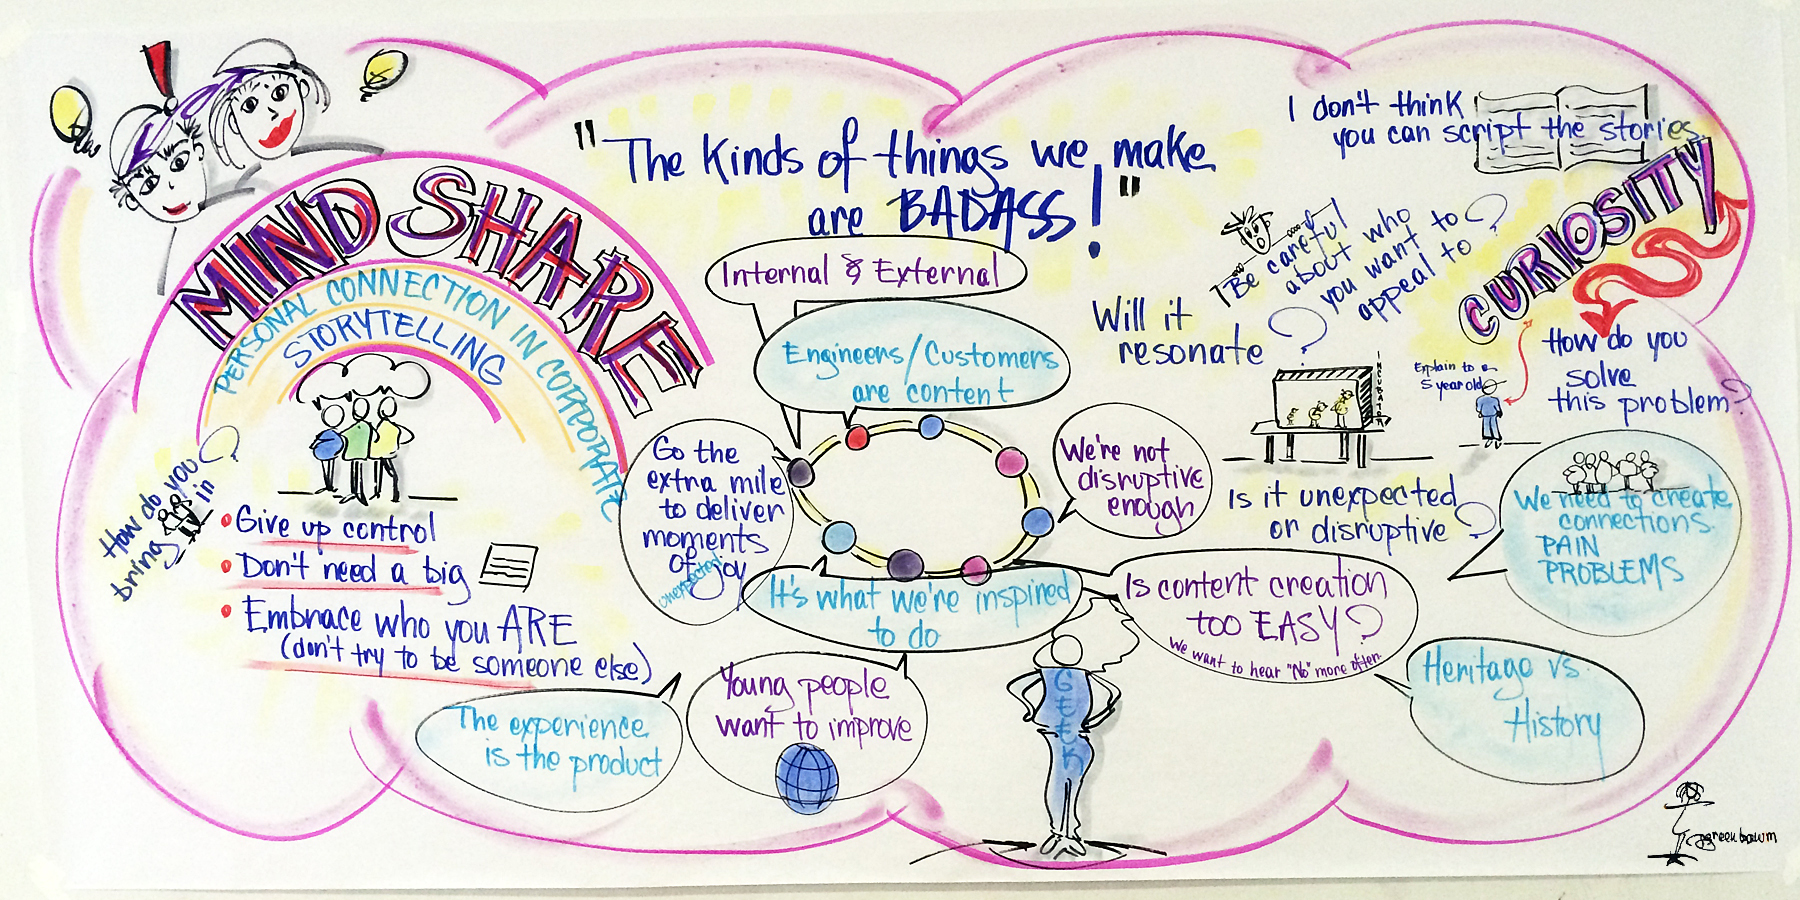 MIND SHARE
PERSONAL CONNECTION IN CORPORATE
STORYTELLING
How do you
bring in?
• Give up control
• Don't need a big
• Embrace who you ARE
(don't try to be someone else)
"The kinds of things we make
are BADASS!"
Internal & External
Engineers/Customers
are content
Go the
extra mile
to deliver
moments
of joy
unexpected
We're not
disruptive
enough
It's what we're inspired
to do
Is content creation
too EASY?
We want to hear "No" more often.
The experience
is the product
Young people
want to improve
GEEK
Heritage vs.
History
I don't think
you can script the stories
CURIOSITY
Be careful
about who
you want to
appeal to?
Will it
resonate?
INCUBATOR
Explain to a
5 year old
How do you
solve
this problem?
Is it unexpected
or disruptive?
We need to create
connections.
PAIN
PROBLEMS